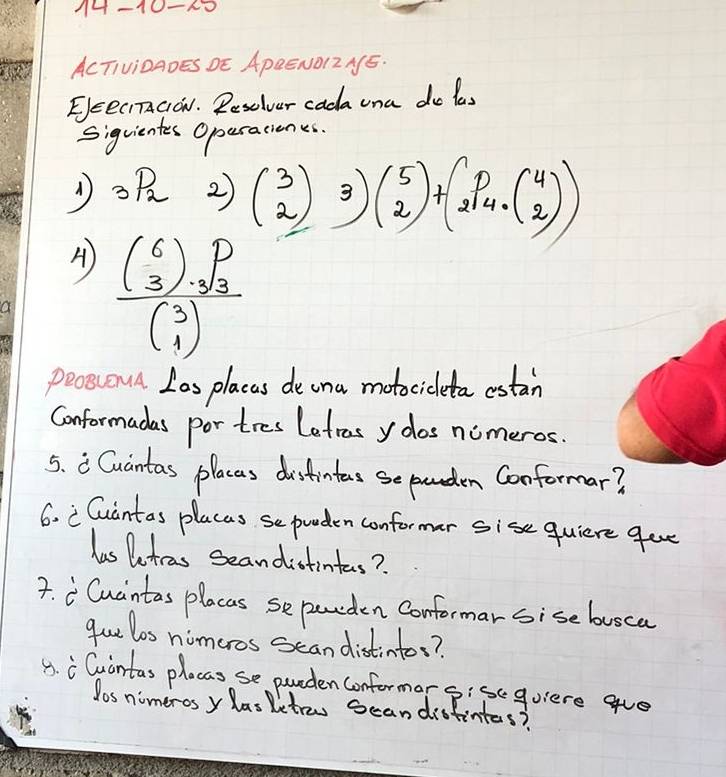 14-10-25
ACTIVIDADES DE APRENDIZAJE.
EJERCITACIÓN. Resolver cada una de las
siguientes Operaciones.
1) ₃P₂ 2) (3 2) 3) (5 2) + (₂P₄ . (4 2))
4) (6 3) . ₃P₃
(3 1)
PROBLEMA Las placas de una motocicleta están
Conformadas por tres Letras y dos números.
5. ¿Cuántas placas distintas se pueden Conformar?
6. ¿Cuántas placas se pueden conformar si se quiere que
las letras sean distintas?
7. ¿Cuántas placas se pueden conformar si se busca
que los números sean distintos?
8. ¿Cuántas placas se pueden conformar si se quiere que
los números y las letras sean distintas?